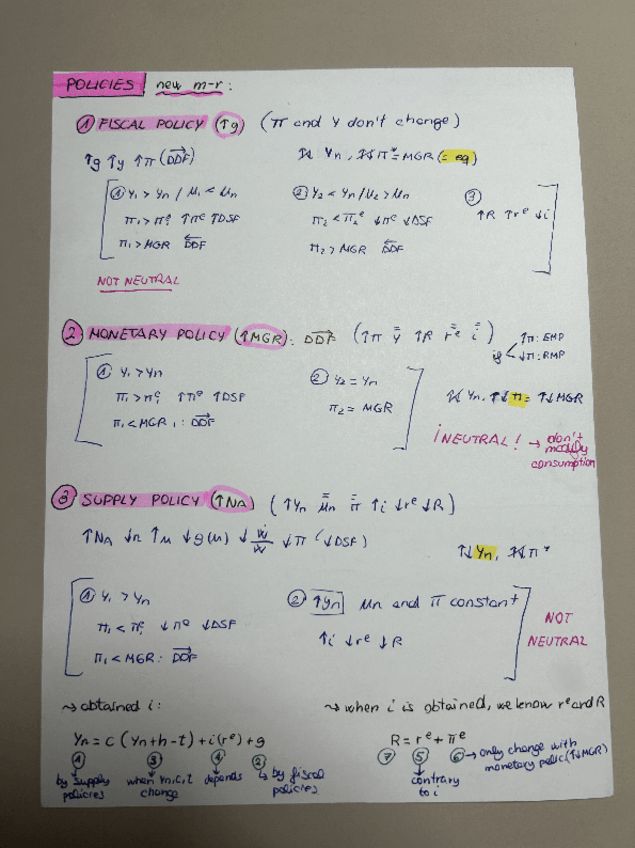 POLICIES new m-r:
① FISCAL POLICY (↑g) (π and y don't change)
↑g ↑y ↑π (DDF→) ↑̸↓ Yn, ↑̸↓ π* = MGR (= eq)
① Y₁ > Yn / μ₁ < μn
π₁ > π₁ᵉ ↑πᵉ ↑DSF
π₁ > MGR DDF←
② Y₂ < Yn / μ₂ > μn
π₂ < π₂ᵉ ↓πᵉ ↓DSF
π₂ > MGR DDF←
③
↑R ↑rᵉ ↓i
NOT NEUTRAL
② MONETARY POLICY (↑MGR): DDF→ (↑π y̿ ↑R r̿ᵉ i̿)
if < ↑π: EMP
↓π: RMP
① Y₁ > Yn
π₁ > π₁ᵉ ↑πᵉ ↑DSF
π₁ < MGR₁: DDF→
② Y₂ = Yn
π₂ = MGR
↑̸↓ Yn, ↑↓ π = ↑↓ MGR
¡NEUTRAL! → don't
modify
consumption
③ SUPPLY POLICY (↑NA) (↑Yn μ̿n π̿ ↑i ↓rᵉ ↓R)
↑NA ↓n ↑μ ↓g(μ) ↓ẇ/w ↓π (↓DSF)
↑↓ Yn, ↑̸↓ π*
① Y₁ > Yn
π₁ < π₁ᵉ ↓πᵉ ↓DSF
π₁ < MGR: DDF→
② ↑yn μn and π constant
↑i ↓rᵉ ↓R
NOT
NEUTRAL
⤳ obtained i:
Yn = c (Yn + h - t) + i(rᵉ) + g
① ③ ④ ②
by supply
policies
when Yn, c, t
change
depends
↳ by fiscal
policies
⤳ when i is obtained, we know rᵉ and R
R = rᵉ + πᵉ
⑦ ⑤ ⑥ → only change with
monetary polic (↑↓MGR)
contrary
to i